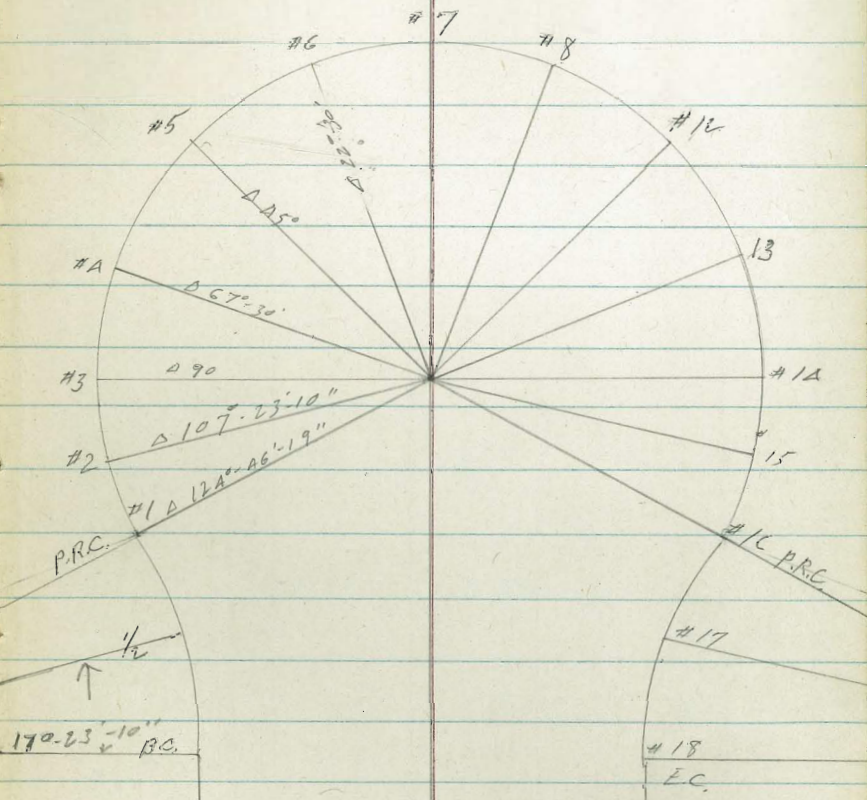 #7
#6
#8
#5
#12
Δ 22°-30'
Δ 45°
13
#4
Δ 67°-30'
#3
Δ 90
#14
Δ 107°-23'-10"
#2
15
#1 Δ 124°-46'-19"
P.R.C.
#16 P.R.C.
1/2
#17
17°-23'-10"
B.C.
#18
E.C.